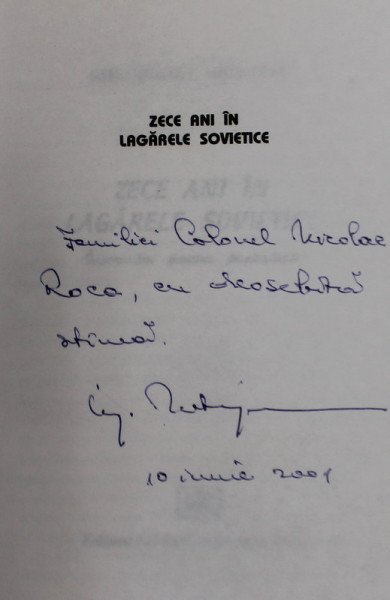 ZECE ANI ÎN
LAGĂRELE SOVIETICE
Familiei Colonel Nicolae
Roca, cu deosebită
stimă.
10 iunie 2001